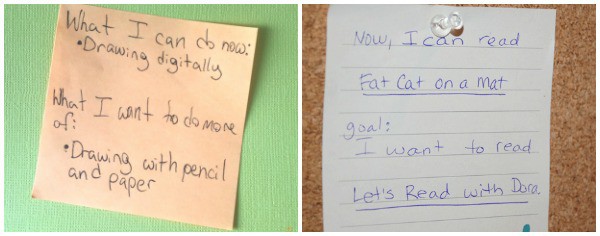 What I can do now:
•Drawing digitally
What I want to do more
of:
•Drawing with pencil
and paper
Now, I can read
Fat Cat on a Mat
goal:
I want to read
Let's Read with Dora